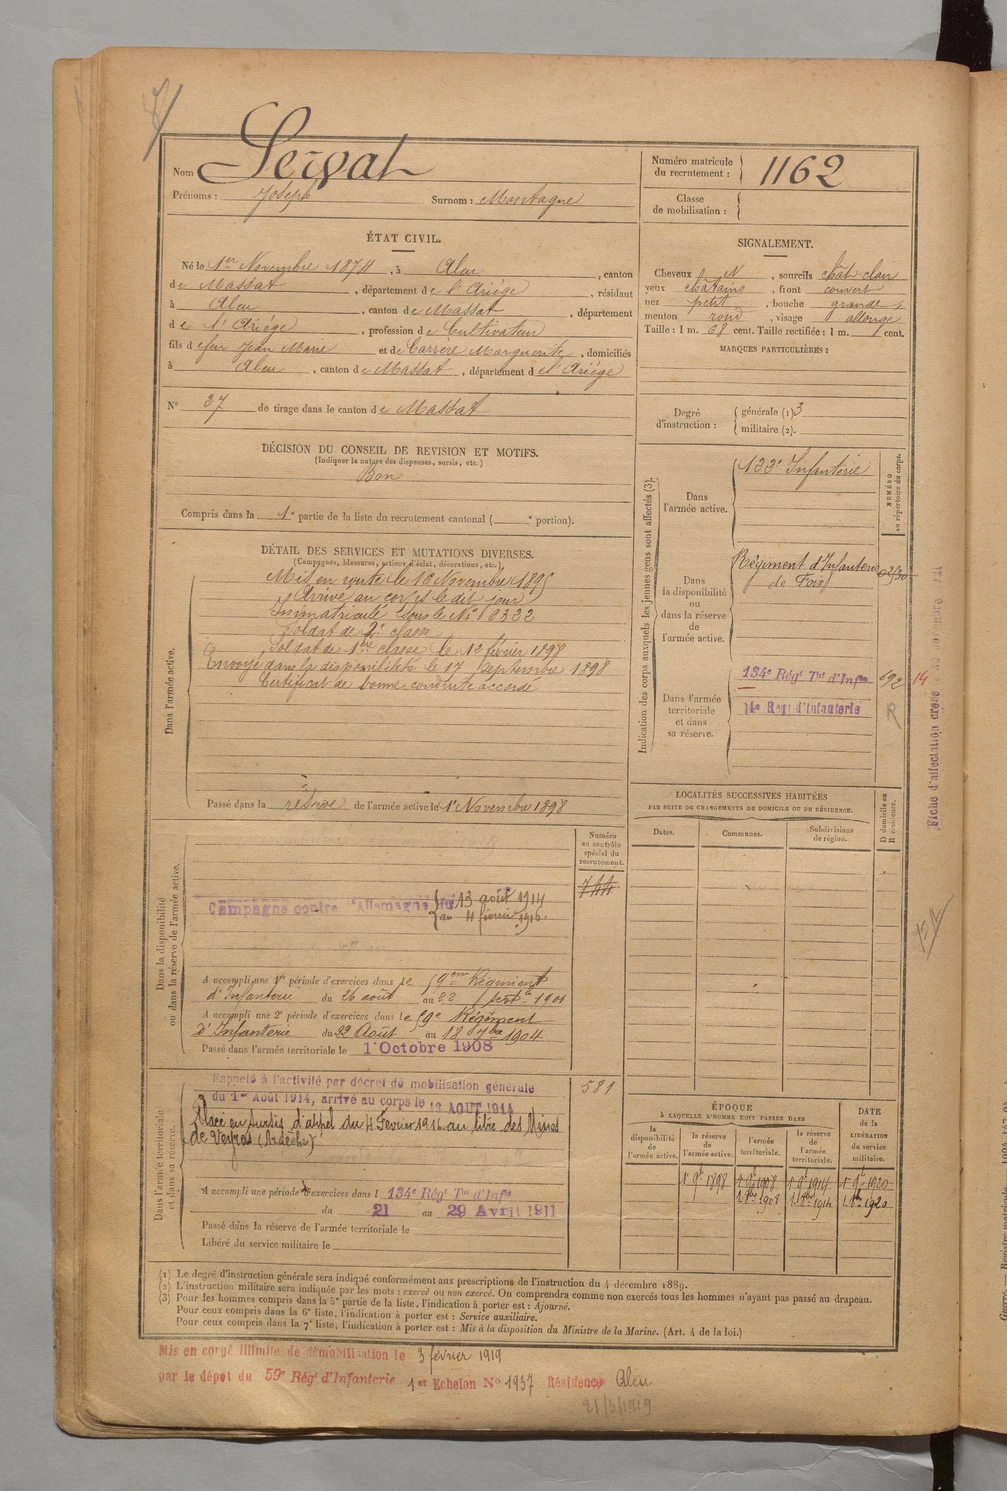 Nom Servat
Prénoms : Joseph Surnom : Montagne
Numéro matricule du recrutement : 1162
Classe de mobilisation :
ÉTAT CIVIL.
Né le 1er Novembre 1874, à Aleu, canton
de Massat, département de l'Ariége, résidant
à Aleu, canton de Massat, département
de l'Ariége, profession de Cultivateur
fils de feu Jean Marie et de Carrère Marguerite, domiciliés
à Aleu, canton de Massat, département de l'Ariége
N° 37 de tirage dans le canton de Massat
SIGNALEMENT.
Cheveux N, sourcils chât-clair
yeux châtains, front couvert
nez petit, bouche grande
menton rond, visage allongé
Taille : 1 m. 68 cent. Taille rectifiée : 1 m. cent.
MARQUES PARTICULIÈRES :
Degré d'instruction : générale (1) 3
militaire (2).
DÉCISION DU CONSEIL DE REVISION ET MOTIFS.
(Indiquer la nature des dispenses, sursis, etc.)
Bon
Compris dans la 1e partie de la liste du recrutement cantonal ( e portion).
DÉTAIL DES SERVICES ET MUTATIONS DIVERSES.
(Campagnes, blessures, actions d'éclat, décorations, etc.)
Dans l'armée active.
Mis en route le 16 Novembre 1895
Arrivé au corps le dit jour
Immatriculé sous le N°
Soldat de 2e classe
Soldat de 1ère classe le 12 février 1898
Envoyé dans la disponibilité le 17 Septembre 1898
Certificat de bonne conduite accordé
Passé dans la réserve de l'armée active le 1er Novembre 1898
Indication des corps auxquels les jeunes gens sont affectés (3).
NUMÉRO au répertoire du corps.
Dans l'armée active. 133e Infanterie
Dans la disponibilité ou dans la réserve de l'armée active. Régiment d'Infanterie de Foix
Dans l'armée territoriale et dans sa réserve. 134e Régt Tal d'Infie 692
14e Régt d'Infanterie R
14
Fiche d'affectation créée
LOCALITÉS SUCCESSIVES HABITÉES
PAR SUITE DE CHANGEMENTS DE DOMICILE OU DE RÉSIDENCE.
Dates. Communes. Subdivisions de région. D domicile ou R résidence.
Dans la disponibilité ou dans la réserve de l'armée active.
Numéro au contrôle spécial du recrutement.
744
Campagne contre l'Allemagne du 13 août 1914
au 4 février 1916
A accompli une 1re période d'exercices dans le 59em Régiment
d'Infanterie du 26 août au 22 Septe 1901
A accompli une 2e période d'exercices dans le 59e Régiment
d'Infanterie du 22 Août au 18 7bre 1904
Passé dans l'armée territoriale le 1er Octobre 1908
Dans l'armée territoriale et dans sa réserve.
581
Rappelé à l'activité par décret de mobilisation générale
du 1er Août 1914, arrivé au corps le 13 AOUT 1914
Placé en sursis d'appel du 4 Février 1916 au titre des Mines
de Veyras (Ardèche)
A accompli une période d'exercices dans l 134e Régt Tal d'Infie
du 21 au 29 Avril 1911
Passé dans la réserve de l'armée territoriale le
Libéré du service militaire le
ÉPOQUE
A LAQUELLE L'HOMME DOIT PASSER DANS
la disponibilité de l'armée active. la réserve de l'armée active. l'armée territoriale. la réserve de l'armée territoriale. DATE de la LIBÉRATION du service militaire.
1 9e 1898 1 9e 1908 1 9e 1914 1 9e 1920
1 8bre 1908 1 8bre 1914 1 8bre 1920
(1) Le degré d'instruction générale sera indiqué conformément aux prescriptions de l'instruction du 4 décembre 1889.
(2) L'instruction militaire sera indiquée par les mots : exercé ou non exercé. On comprendra comme non exercés tous les hommes n'ayant pas passé au drapeau.
(3) Pour les hommes compris dans la 5e partie de la liste, l'indication à porter est : Ajourné.
Pour ceux compris dans la 6e liste, l'indication à porter est : Service auxiliaire.
Pour ceux compris dans la 7e liste, l'indication à porter est : Mis à la disposition du Ministre de la Marine. (Art. 4 de la loi.)
Mis en congé illimité de démobilisation le 3 février 1919
par le dépot du 59e Régt d'Infanterie 1er Echelon N° 1937 Résidence Aleu
21/3/1919